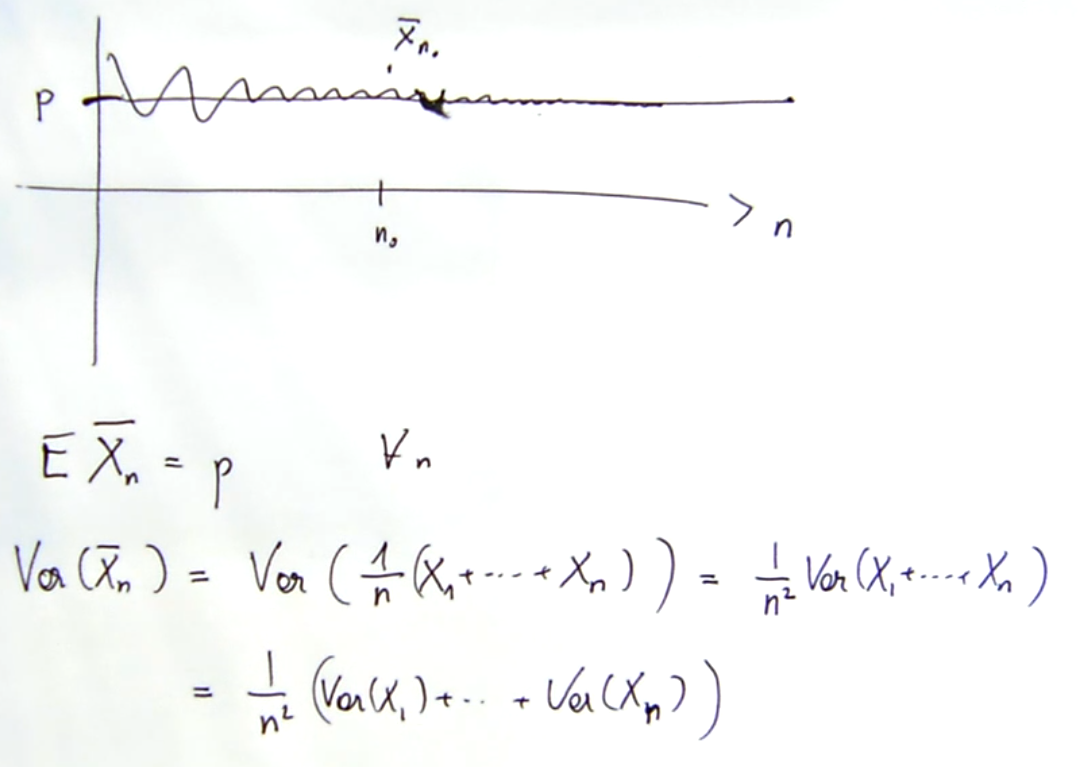 X̄ₙ₀
p
n₀
> n
E X̄ₙ = p ∀n
Var(X̄ₙ) = Var(1/n(X₁+····+Xₙ)) = 1/n² Var(X₁+····+Xₙ)
= 1/n² (Var(X₁)+··+Var(Xₙ))